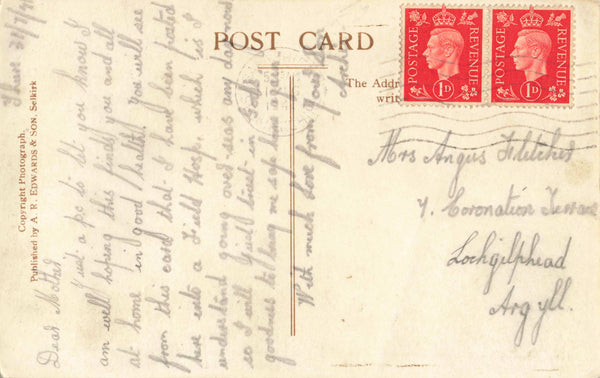 POST CARD
The Addr
writ
POSTAGE REVENUE
1D
POSTAGE REVENUE
1D
Mrs Angus Fletcher
7. Coronation Terrace
Lochgilphead
Argyll.
Copyright Photograph.
Published by A. R. EDWARDS & SON, Selkirk
Thurs
Dear Mother
Just a p.c. to let you know I
am well hoping this finds you and all
at home in good health. You will see
from this card that I have been posted
here into a Field Hosp. which is I
understand going over-seas any day now
so I will just trust in God's
goodness to bring me safe home again
With much love from your